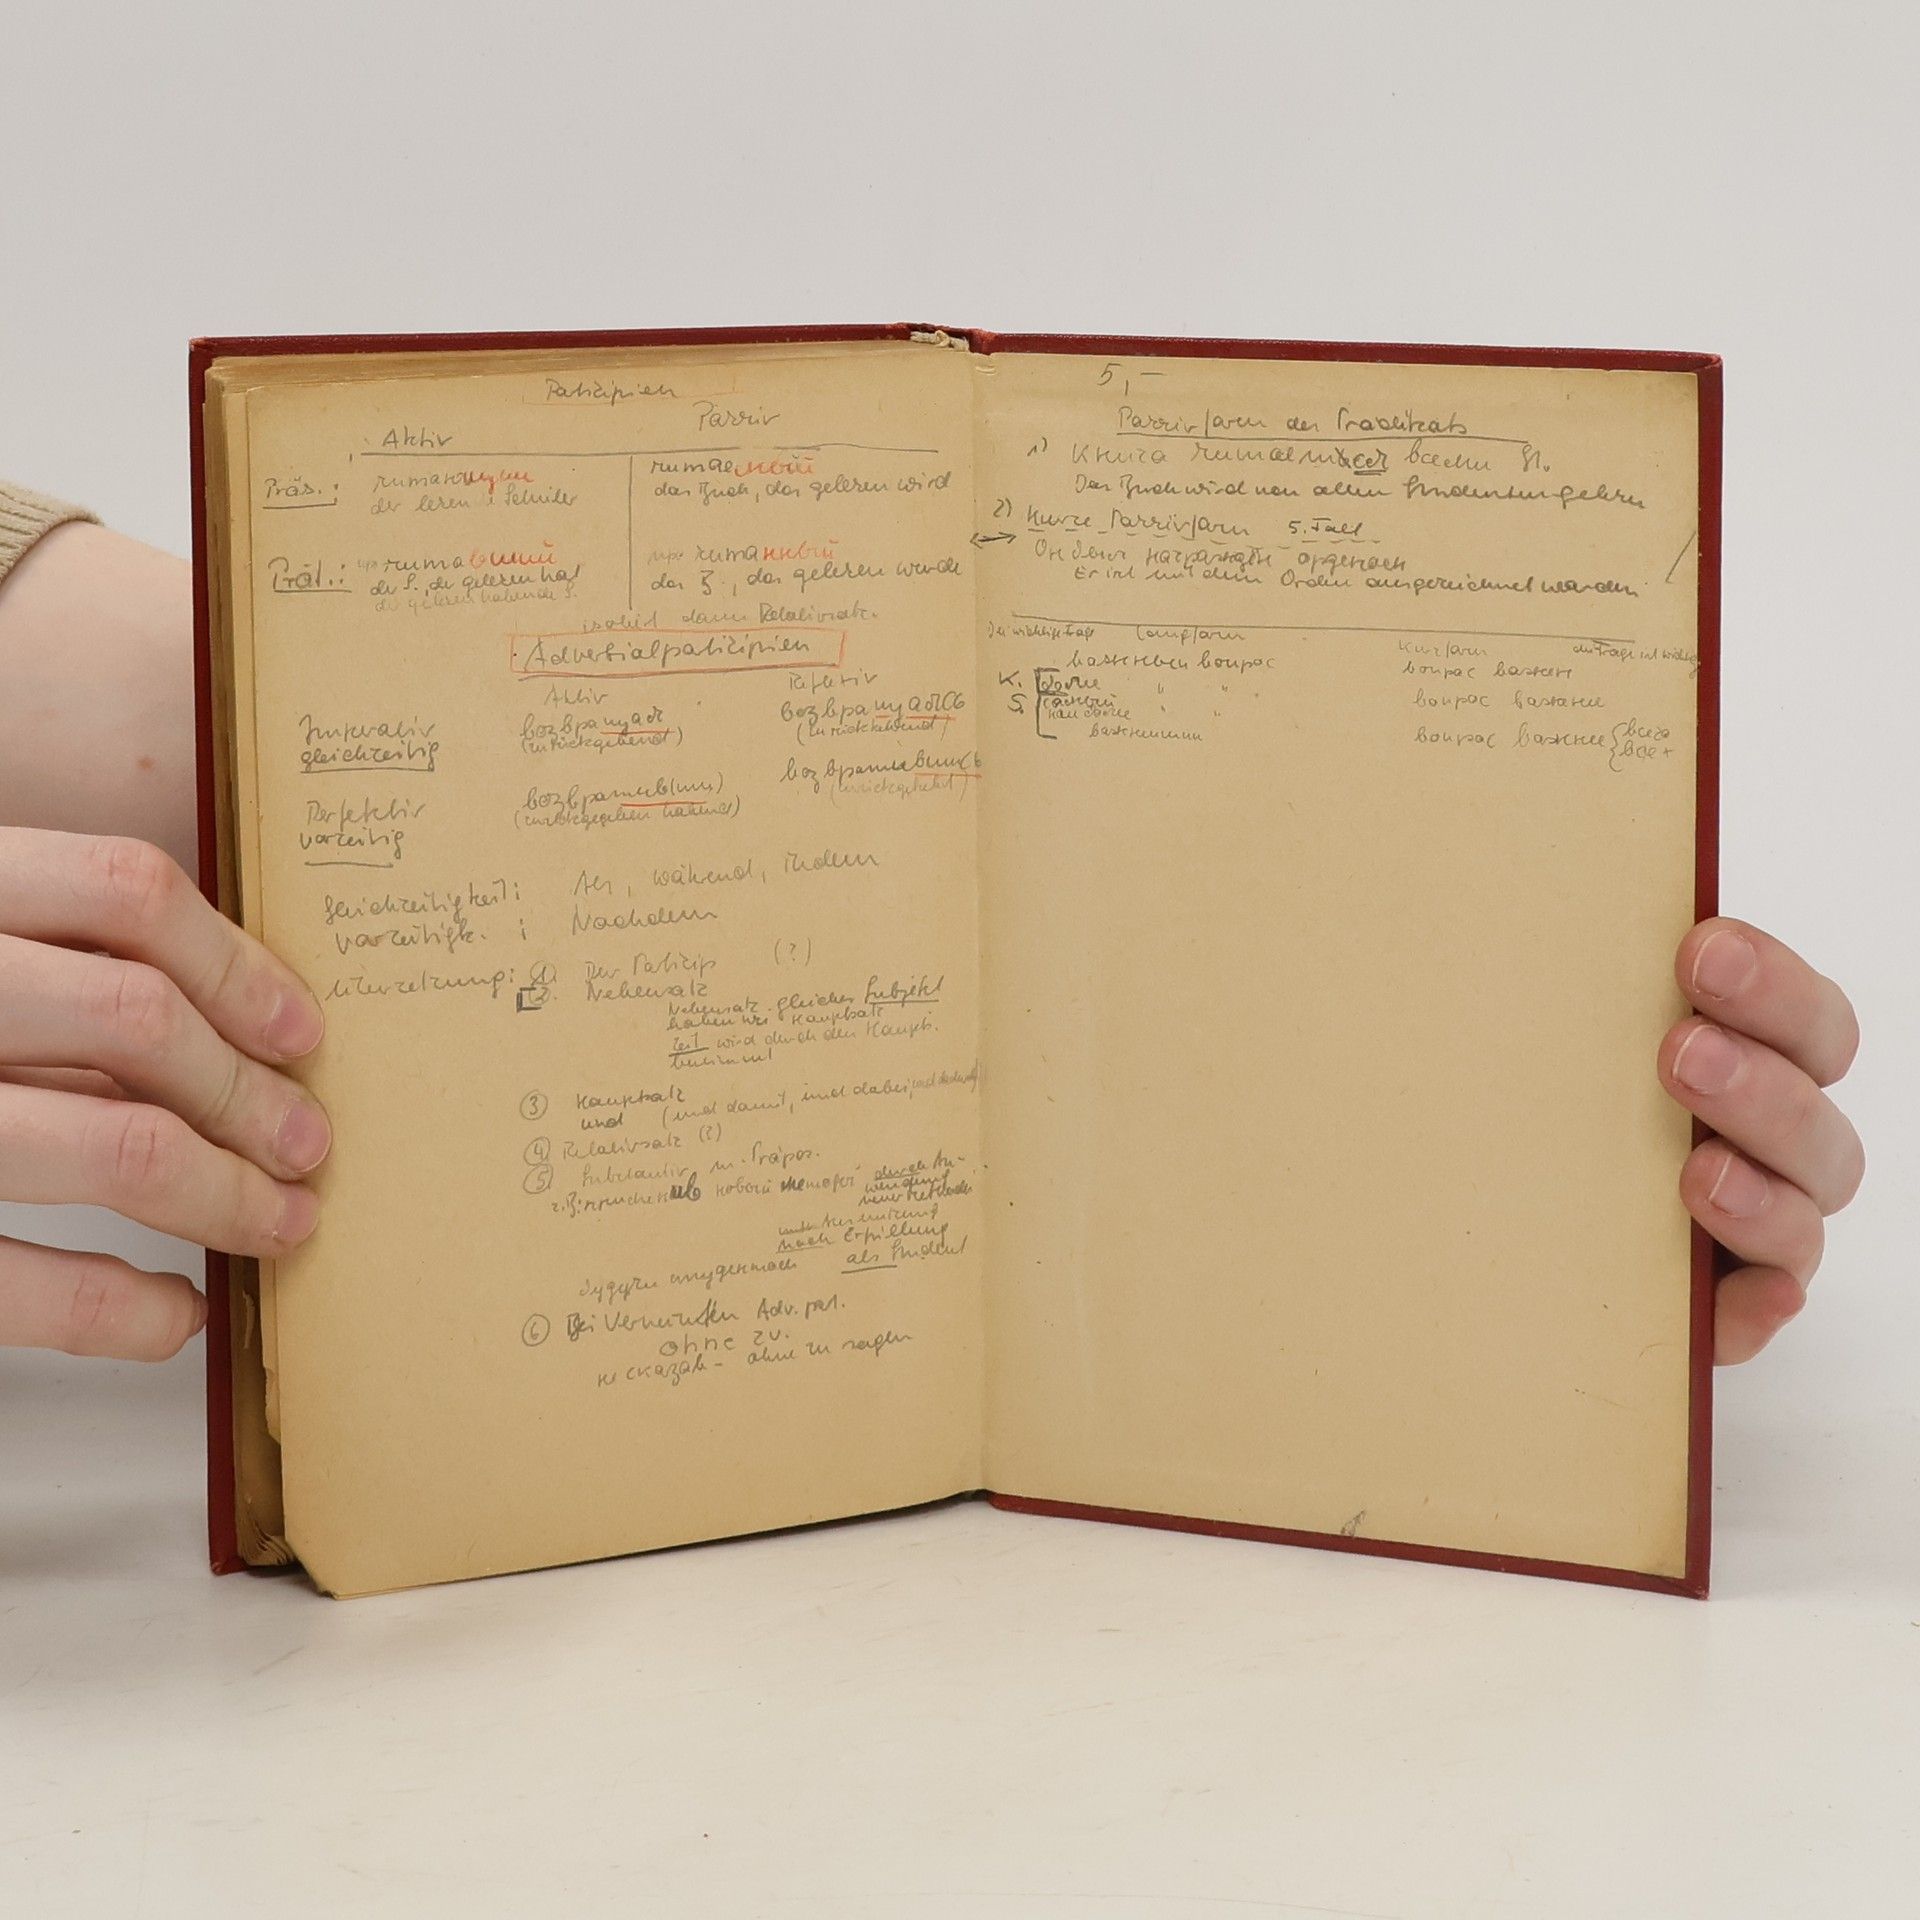 Partizipien
Aktiv Passiv
Präs.: читающий читаемый
der lesende Schüler das Buch, das gelesen wird
Prät.: читавший читанный
der S., der gelesen hat das B., das gelesen wurde
der gelesen habende S.
dann Relativsatz.
Adverbialpartizipien
Aktiv Reflexiv
gleichzeitig возвращая возвращаясь
(zurückgebend) (zurückkehrend)
Perfektiv возвратив(ши) возвратившись
vorzeitig (zurückgegeben habend) (zurückgekehrt)
Gleichzeitigkeit: Als, während, indem
Vorzeitigk.: Nachdem
Übersetzung: 1. Der Partizip (?)
2. Nebensatz
Nebensatz gleiches Subjekt
haben wie Hauptsatz
Zeit wird durch den Haupts.
bestimmt
③ Hauptsatz
und (und damit, und dabei, und dadurch)
④ Relativsatz (?)
⑤ Substantiv m. Präpos.
z.B. новой durch An-
wendung
neuer Methoden
nach Erfüllung
будучи студентом als Student
⑥ Bei Verneinten Adv. part.
ohne zu.
не сказав - ohne zu sagen
5,-
Passivform des Prädikats
1) Книга читается всеми
Das Buch wird von allen Studenten gelesen
2) Kurze Passivform 5. Fall
Он был орденом
Er ist mit dem Orden ausgezeichnet worden
Die wichtige Frage Langform Kurzform die Frage ist wichtig
важный вопрос вопрос важен
K. более " " вопрос важнее
S. самый
наиболее " "
важнейший вопрос важнее { всего
всех